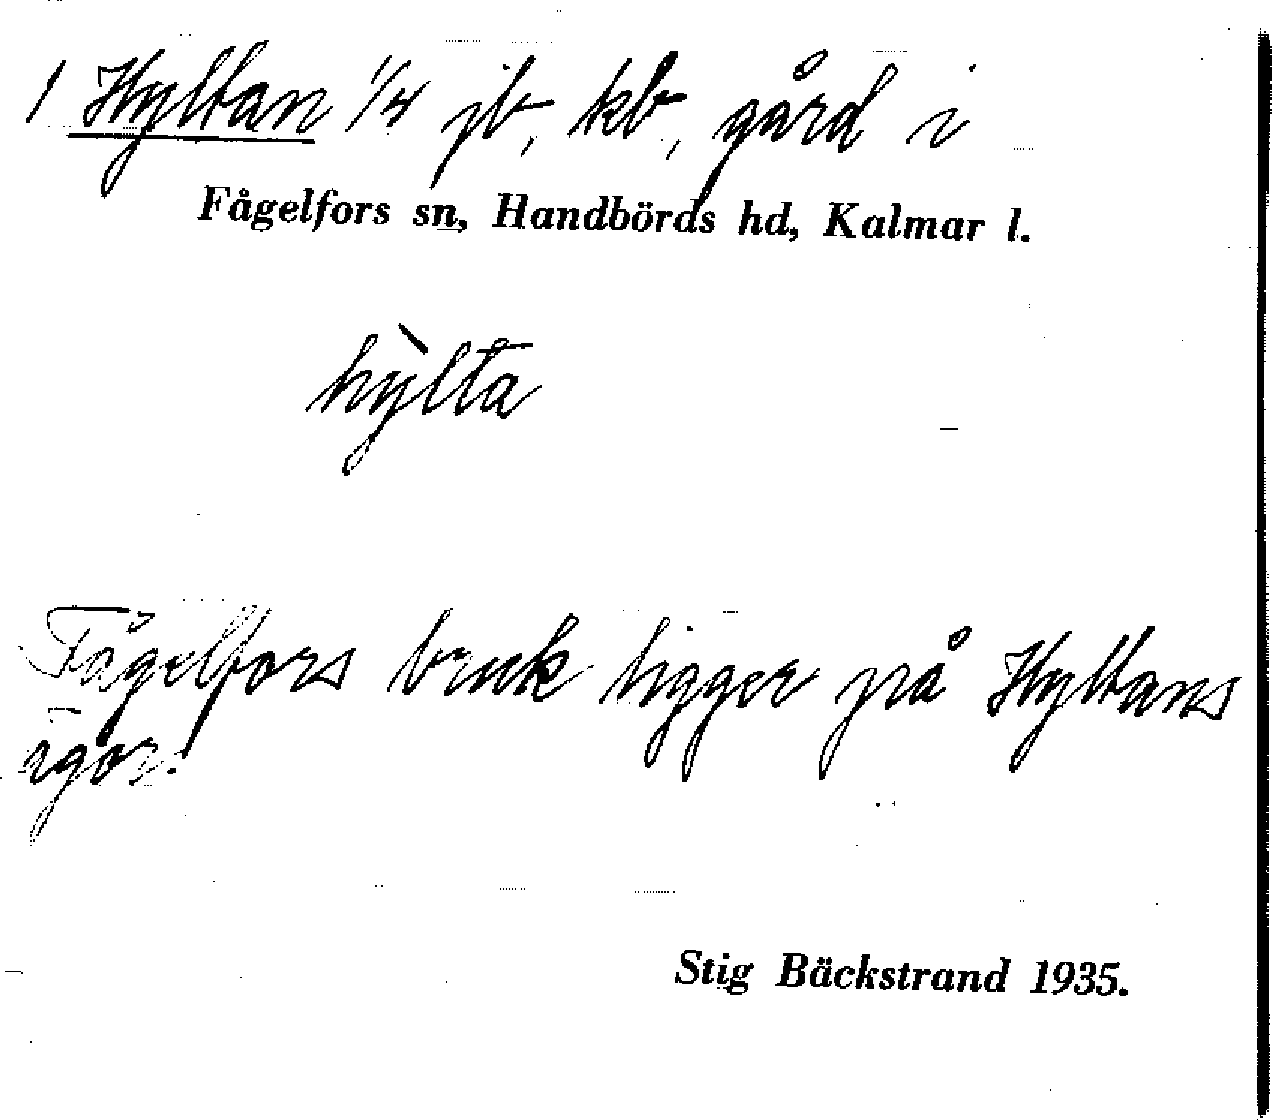 1 Hyltan 1/4 jb, kb, gård i
Fågelfors sn, Handbörds hd, Kalmar l.
hỳlta
Fågelfors bruk ligger på Hyltans
ägor.
Stig Bäckstrand 1935.